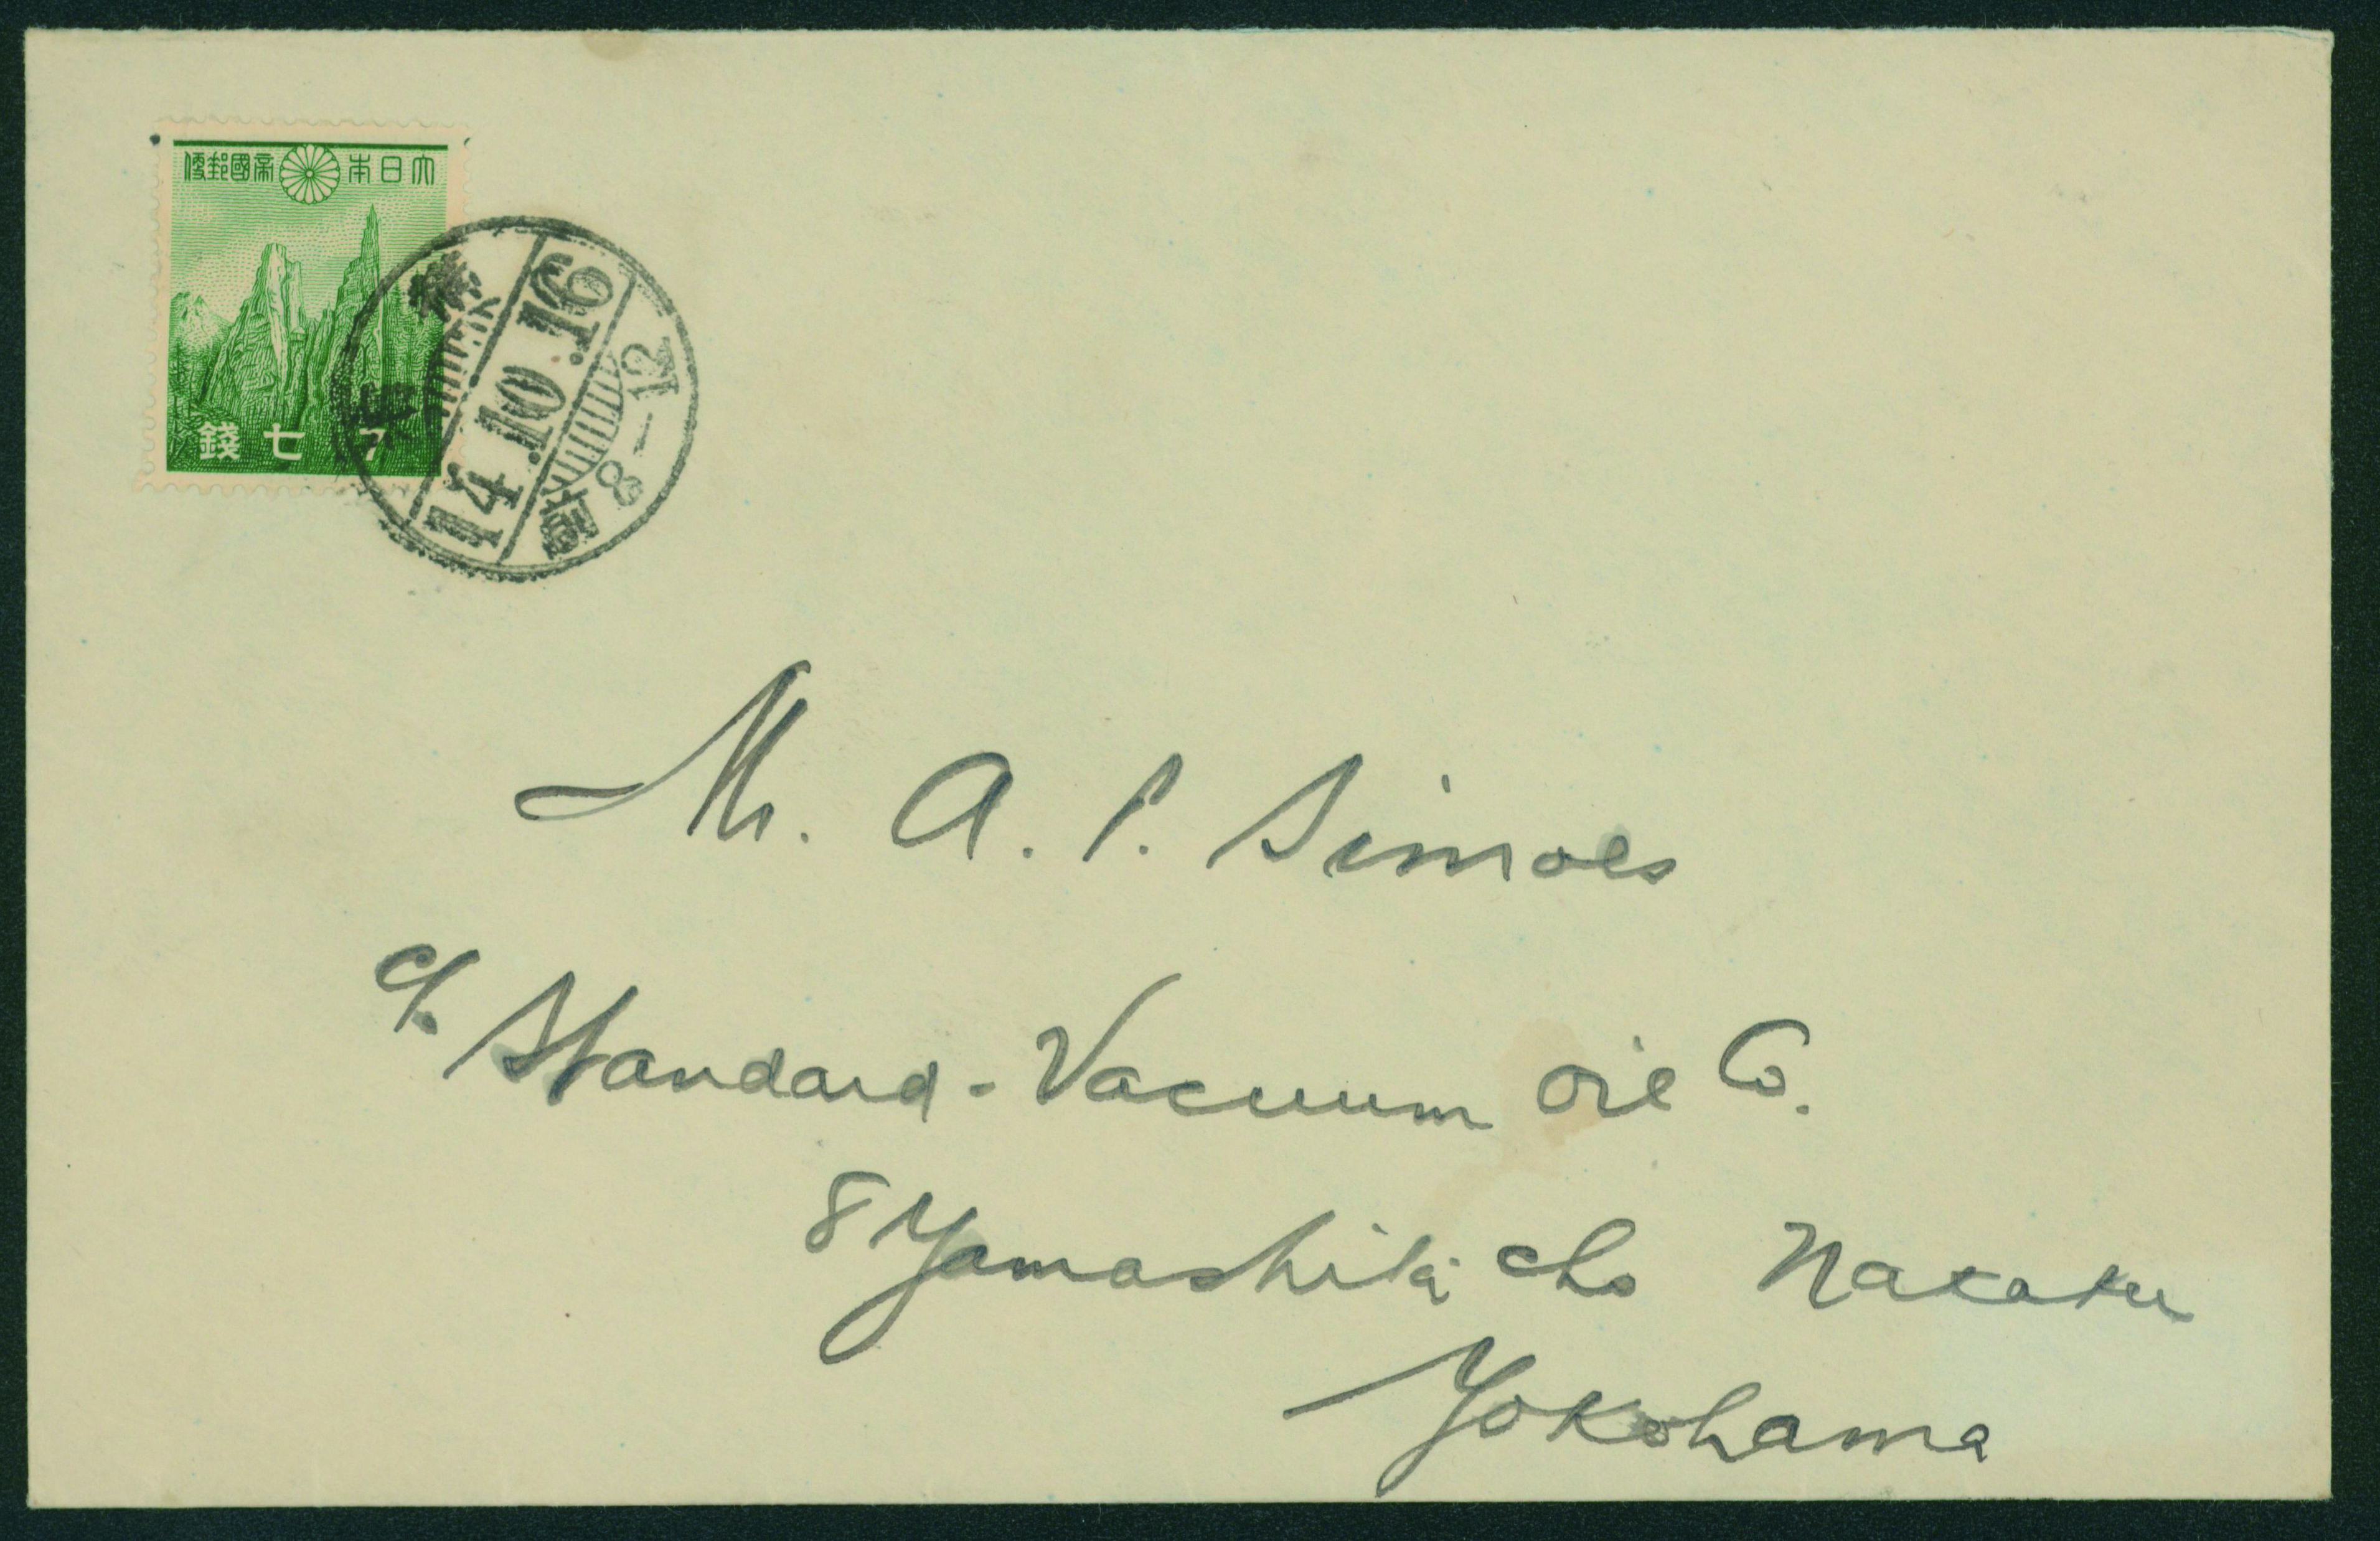 大日本帝國郵便
錢七 7
14.10.16
前 8-12
Mr. A. P. Simoes
c/o Standard-Vacuum Oil Co.
8 Yamashita cho Nakaku
Yokohama